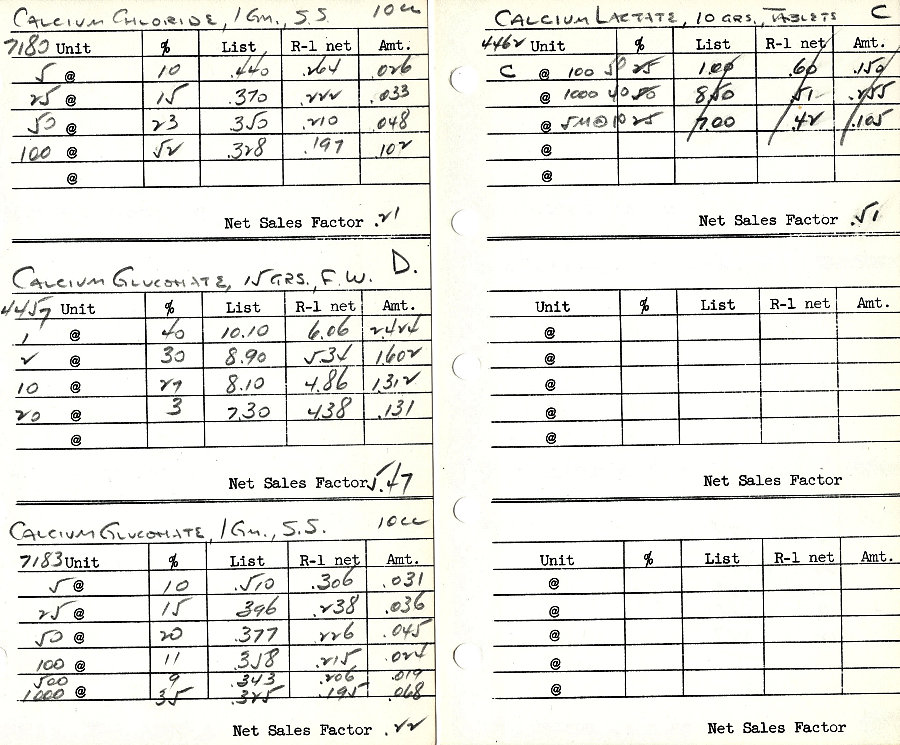 CALCIUM CHLORIDE, 1 GM., S.S. 10cc
7180 Unit % List R-1 net Amt.
5 @ 10 .440 .264 .026
25 @ 15 .370 .222 .033
50 @ 23 .350 .210 .048
100 @ 52 .328 .197 .102
@
Net Sales Factor .21
CALCIUM GLUCONATE, 15 GRS., F.W. D.
4457 Unit % List R-1 net Amt.
1 @ 40 10.10 6.06 2.424
2 @ 30 8.90 5.34 1.602
10 @ 27 8.10 4.86 1.312
20 @ 3 7.30 4.38 .131
@
Net Sales Factor 5.47
CALCIUM GLUCONATE, 1 GM., S.S. 10cc
7183 Unit % List R-1 net Amt.
5 @ 10 .510 .306 .031
25 @ 15 .396 .238 .036
50 @ 20 .377 .226 .045
100 @ 11 .358 .215 .024
500 9 .343 .206 .019
1000 @ 35 .325 .195 .068
Net Sales Factor .22
CALCIUM LACTATE, 10 GRS., TABLETS C
4462 Unit % List R-1 net Amt.
C @ 100 50 25 1.00 .60 .150
@ 1000 40 50 8.50 .51 .255
@ 5M@10 25 7.00 .42 .105
@
@
Net Sales Factor .51
Unit % List R-1 net Amt.
@
@
@
@
@
Net Sales Factor
Unit % List R-1 net Amt.
@
@
@
@
@
Net Sales Factor